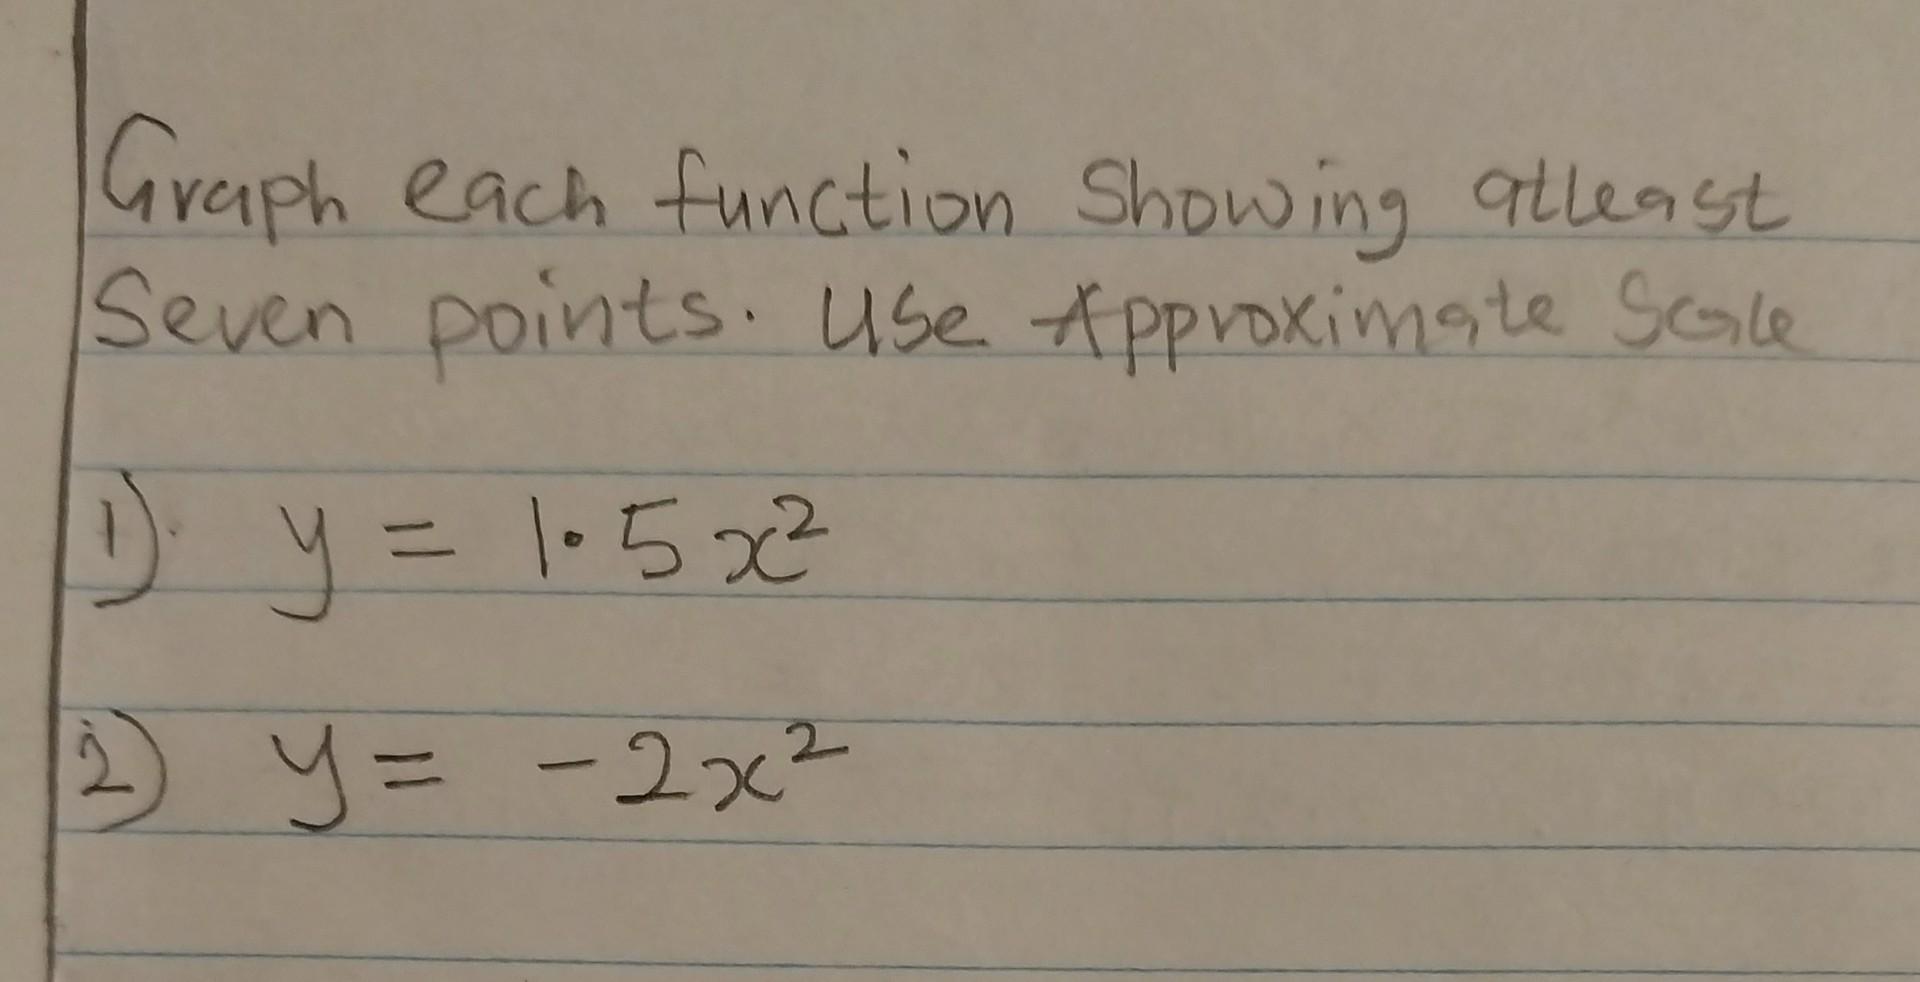 Graph each function Showing atleast
Seven points. Use Approximate Scale
1). y = 1.5x²
2) y = -2x²